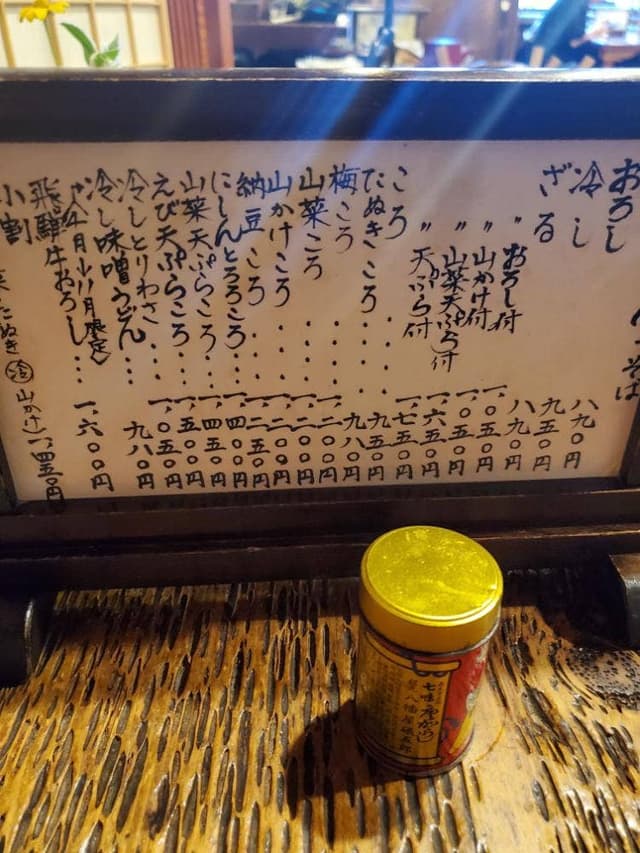 おろし 八九〇円
冷し 九五〇円
ざる 八九〇円
〃 おろし付 一、〇五〇円
〃 山かけ付 一、〇五〇円
〃 山菜天ぷら付 一、六五〇円
〃 天ぷら付 一、七五〇円
ころ 九五〇円
たぬきころ 九八〇円
梅ころ 一、二〇〇円
山菜ころ 一、二〇〇円
山かけころ 一、二〇〇円
納豆ころ 一、二五〇円
にしんとろろころ 一、四〇〇円
山菜天ぷらころ 一、四五〇円
えび天ぷらころ 一、五〇〇円
冷しとりわさ 一、〇五〇円
冷し味噌うどん 九八〇円
月限定
飛騨牛おろし 一、六〇〇円
小割 たぬき 冷 山かけ 一、四五〇円
七味唐からし
八幡屋礒五郎